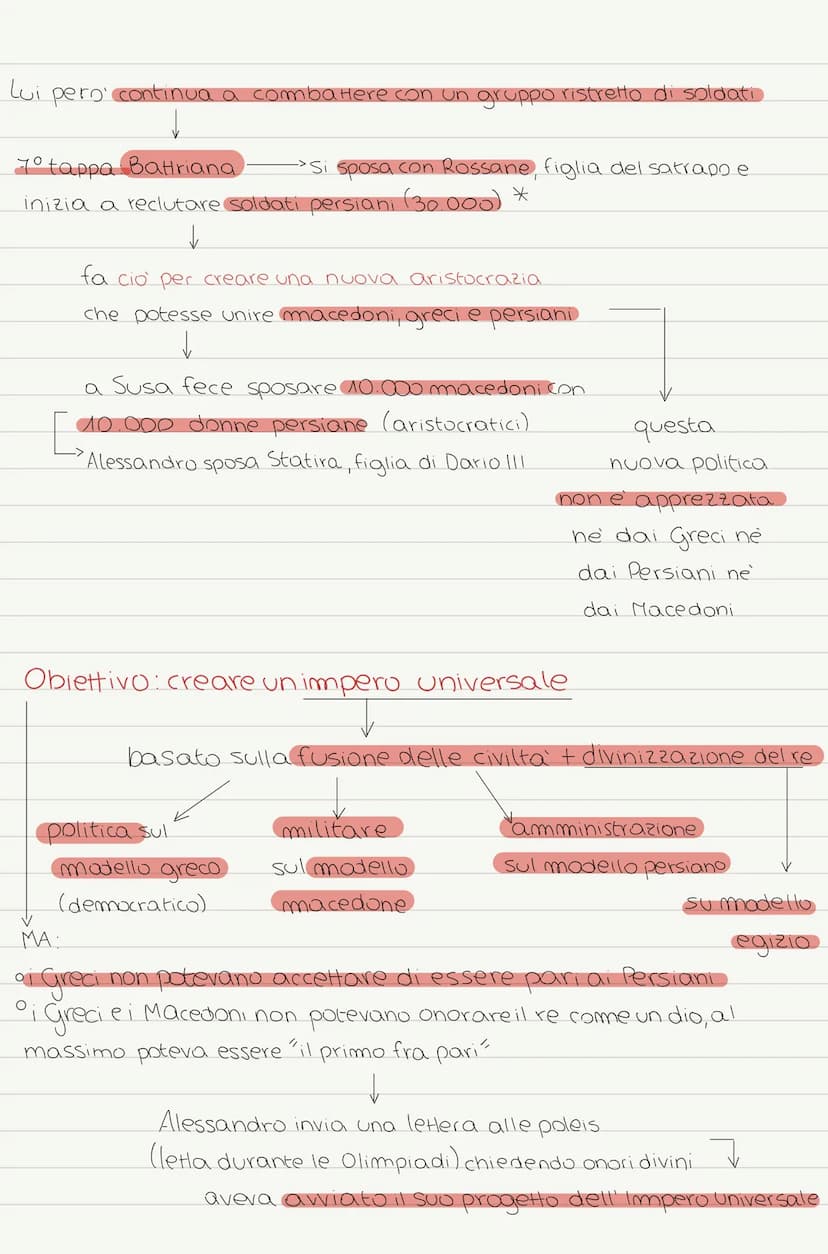 Lui però continua a combattere con un gruppo ristretto di soldati
7° tappa Battriana → Si sposa con Rossane, figlia del satrapo e
inizia a reclutare soldati persiani (30.000) *
fa ciò per creare una nuova aristocrazia
che potesse unire macedoni, greci e persiani
a Susa fece sposare 10.000 macedoni con
10.000 donne persiane (aristocratici)
Alessandro sposa Statira, figlia di Dario III
questa
nuova politica
non è apprezzata
nè dai Greci nè
dai Persiani nè
dai Macedoni
Obiettivo: creare un impero universale
basato sulla fusione delle civiltà + divinizzazione del re
politica sul
modello greco
(democratico)
militare
sul modello
macedone
amministrazione
sul modello persiano
su modello
egizio
MA:
° i Greci non potevano accettare di essere pari ai Persiani
° i Greci e i Macedoni non potevano onorare il re come un dio, al
massimo poteva essere "il primo fra pari"
Alessandro invia una lettera alle poleis
(letta durante le Olimpiadi) chiedendo onori divini
aveva avviato il suo progetto dell'Impero Universale